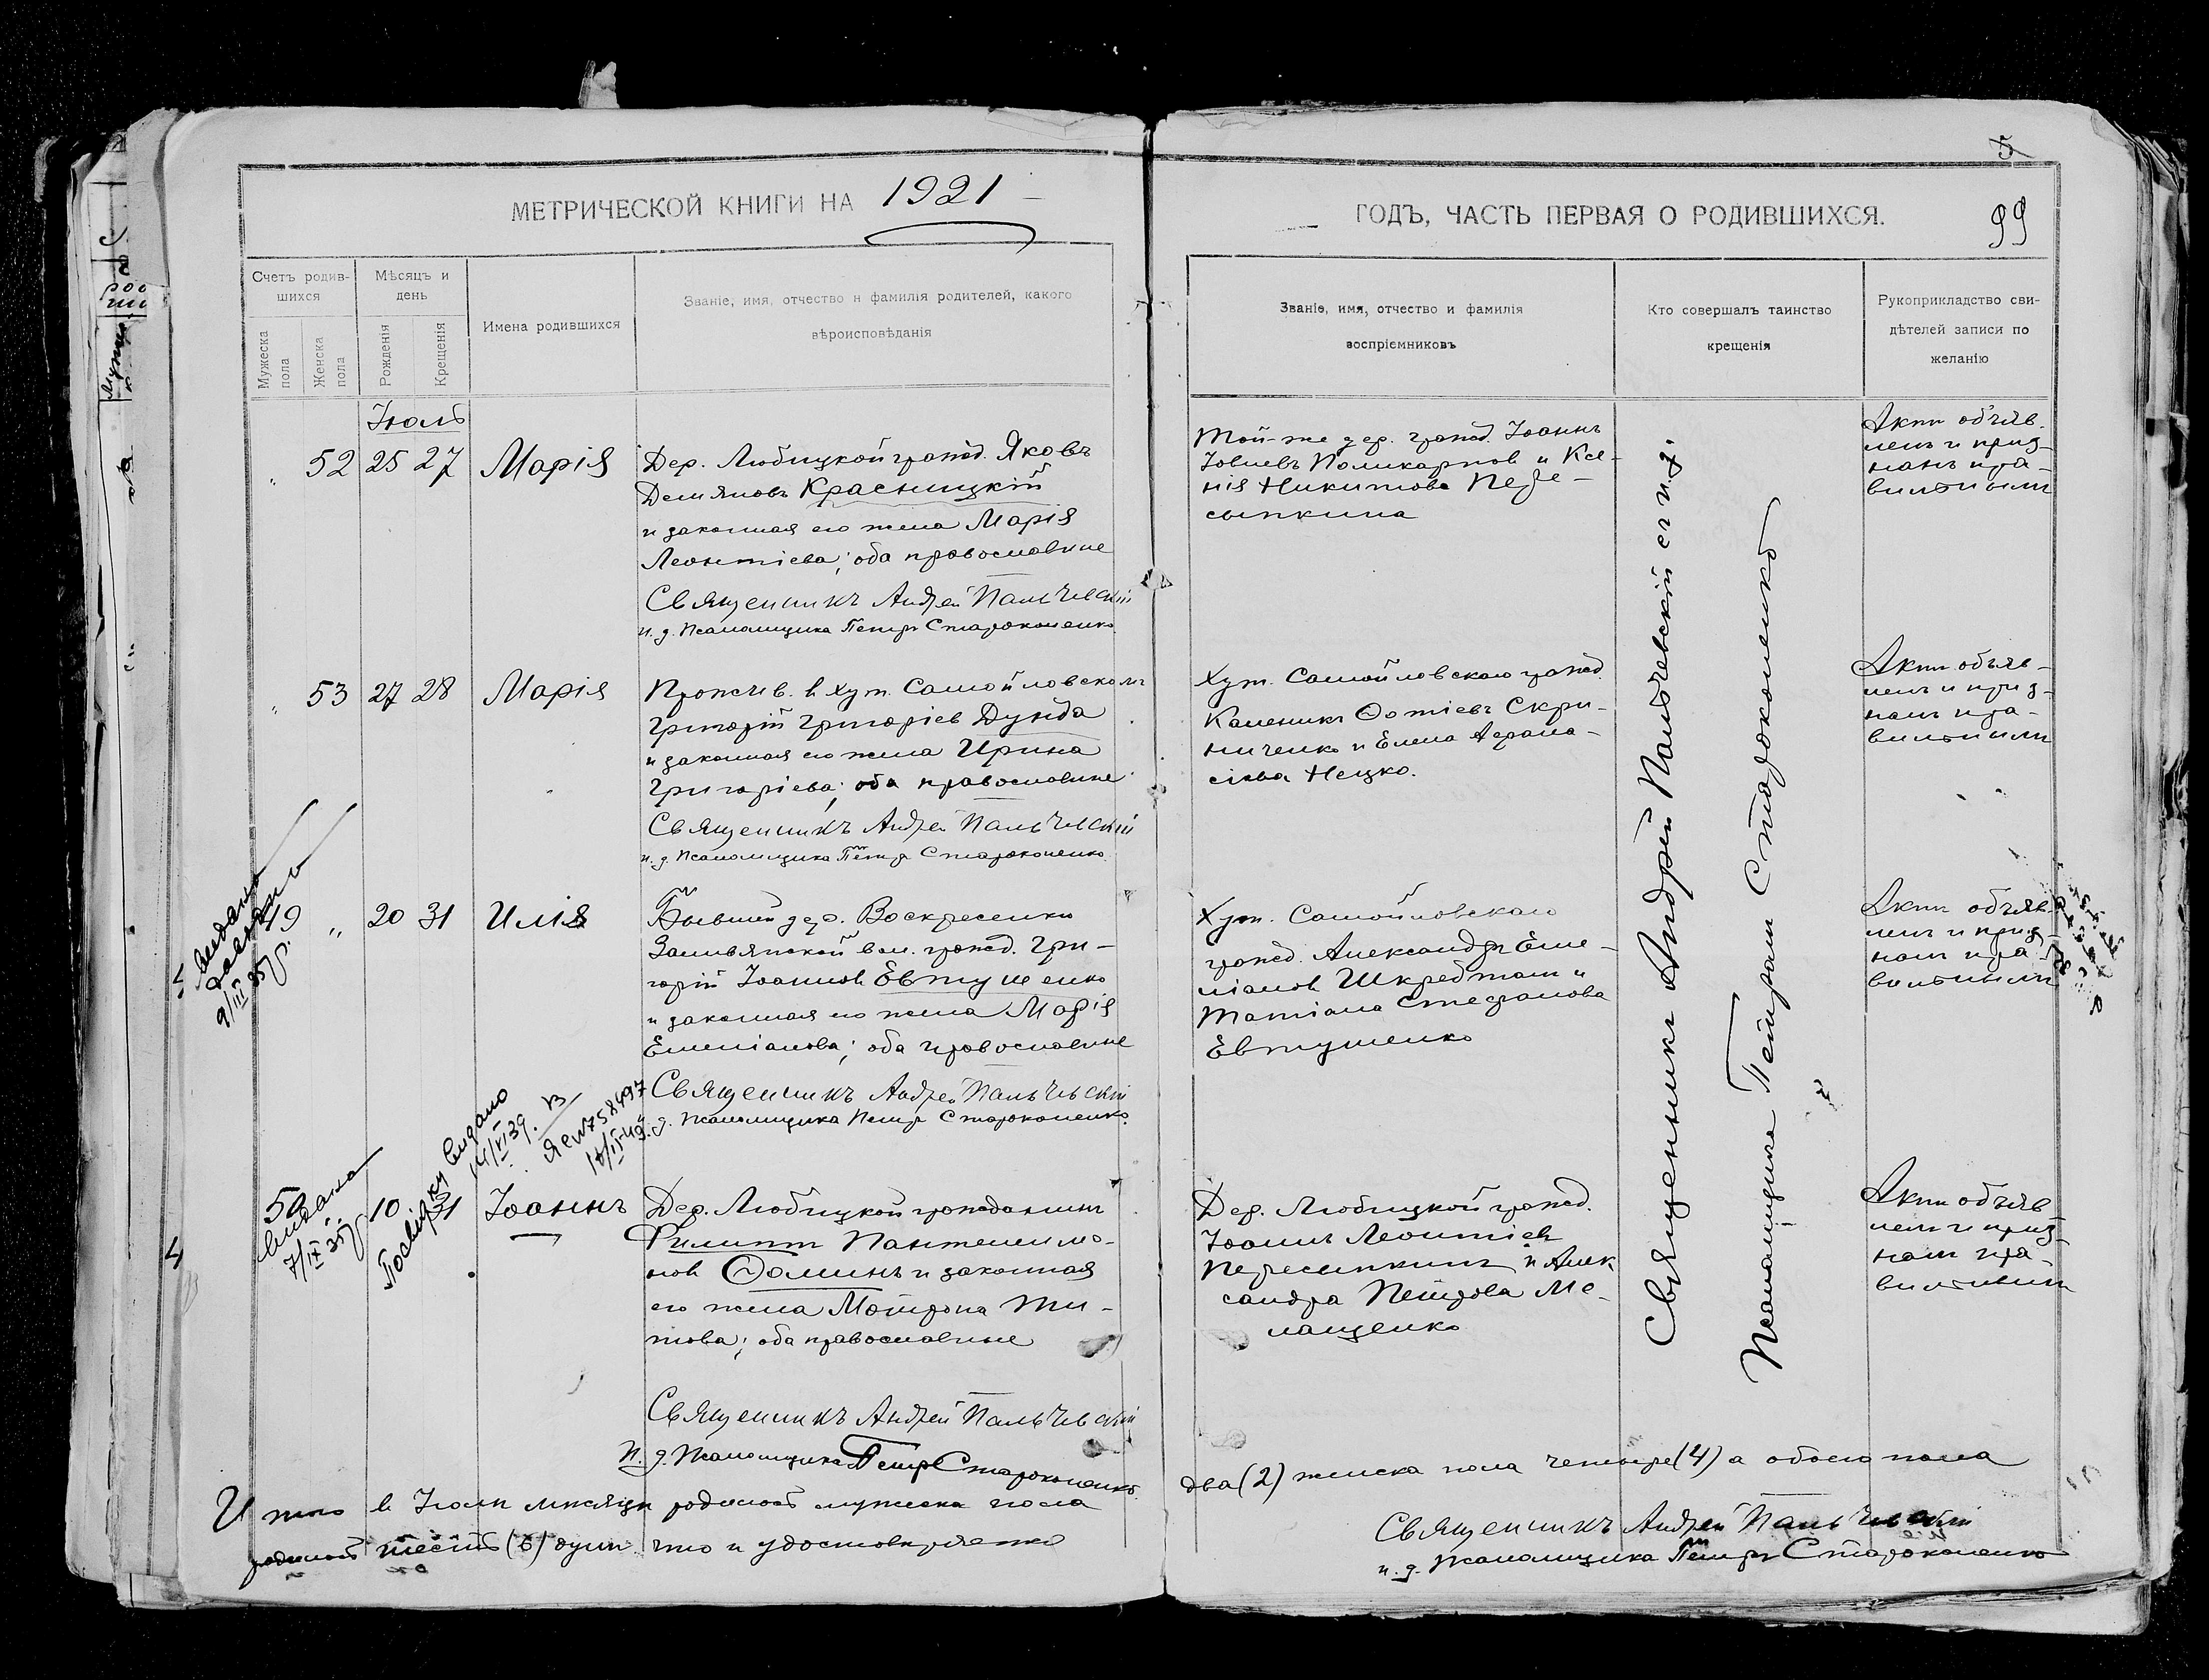 5
МЕТРИЧЕСКОЙ КНИГИ НА 1921
ГОДЪ, ЧАСТЬ ПЕРВАЯ О РОДИВШИХСЯ.
99
Счетъ родив-
шихся
Мужеска
пола
Женска
пола
Мѣсяцъ и
день
Рожденія
Крещенія
Имена родившихся
Званіе, имя, отчество и фамилія родителей, какого
вѣроисповѣданія
Званіе, имя, отчество и фамилія
воспріемниковъ
Кто совершалъ таинство
крещенія
Рукоприкладство сви-
дѣтелей записи по
желанію
Іюль
„ 52 25 27 Марія
Дер. Любицкой гражд. Яковъ
Деміяновъ Красницкій
и законная его жена Марія
Леонтіева; оба православные
Священникъ Андрей Пальчевскій
и. д. Псаломщика Петръ Староконенко.
Той-же дер. гражд. Іоаннъ
Іовлевъ Поликарпов и Ксе-
нія Никитова Пере-
сыпкина
Актъ объяв-
ленъ и приз-
нанъ пра-
вильнымъ
„ 53 27 28 Марія
Прожив. в хут. Самойловскомъ
Григорій Григоріев Дунда
и законная его жена Ирина
Григоріева; оба православные
Священникъ Андрей Пальчевскій
и. д. Псаломщика Петръ Староконенко
Хут. Самойловскаго гражд.
Каленикъ Фотіевъ Скри-
ниченко и Елена Афана-
сіева Нецко.
Актъ объяв-
ленъ и приз-
нанъ пра-
вильнымъ
49 „ 20 31 Илія
Бывшій дер. Воскресенки
вол. гражд. Гри-
горій Іоаннов Евтушенко
и законная его жена Марія
Емеліанова; оба православные
Священникъ Андрей Пальчевскій
и. д. Псаломщика Петръ Староконенко.
Хут. Самойловскаго
гражд. Александръ Еме-
ліанов и
Татіана Стефанова
Евтушенко
Актъ объяв-
ленъ и приз-
нанъ пра-
вильнымъ
видано
9/III 35 р.
50 „ 10 31 Іоаннъ
видано
7/IX 35 р
Довідку видано
14/VI 39 р.
758497
Дер. Любицкой гражданинъ
Филиппъ Пантелеимо-
нов Фоминъ и законная
его жена Матрона Ти-
това; оба православные
Священникъ Андрей Пальчевскій
и. д. Псаломщика Петръ Староконенко.
Дер. Любицкой гражд.
Іоаннъ Леонтіев
Пересыпкинъ и Алек
сандра Петрова Ме-
лащенко
Актъ объяв
ленъ и приз-
нанъ пра-
вильнымъ
Священникъ Андрей Пальчевскій съ и. д.
Псаломщика Петромъ Староконенко
4
Итого в Іюлѣ мѣсяцѣ родилось мужеска пола
два (2) женска пола четыре (4) а обоего пола
родилось шесть (6) душъ что и удостовѣряемъ
Священникъ Андрей Пальчевскій
и. д. Псаломщика Петръ Староконенко